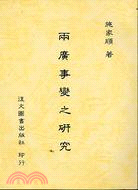 施家順 著
兩廣事變之研究
復文圖書出版社 印行